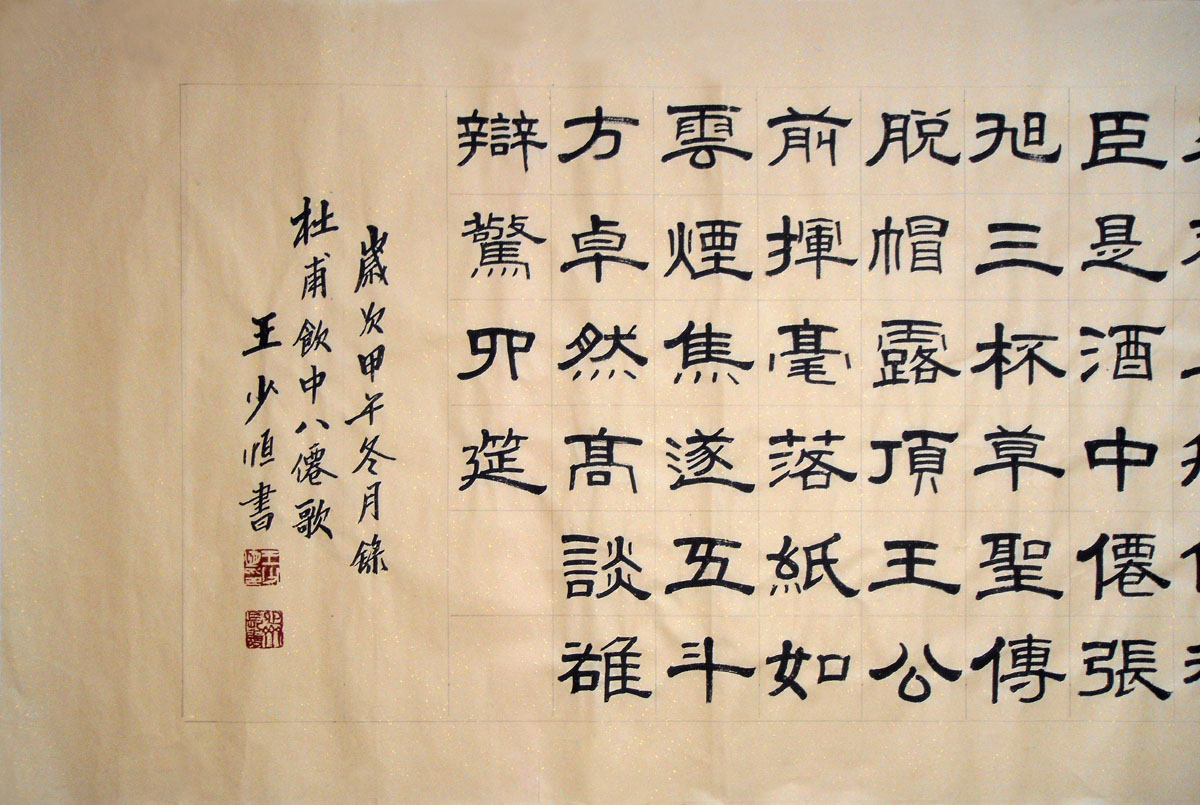 臣是酒中僊張
旭三杯草聖傳
脱帽露頂王公
前揮毫落紙如
雲煙焦遂五斗
方卓然高談雄
辯驚四筵
歲次甲午冬月錄
杜甫飲中八僊歌
王少恒書